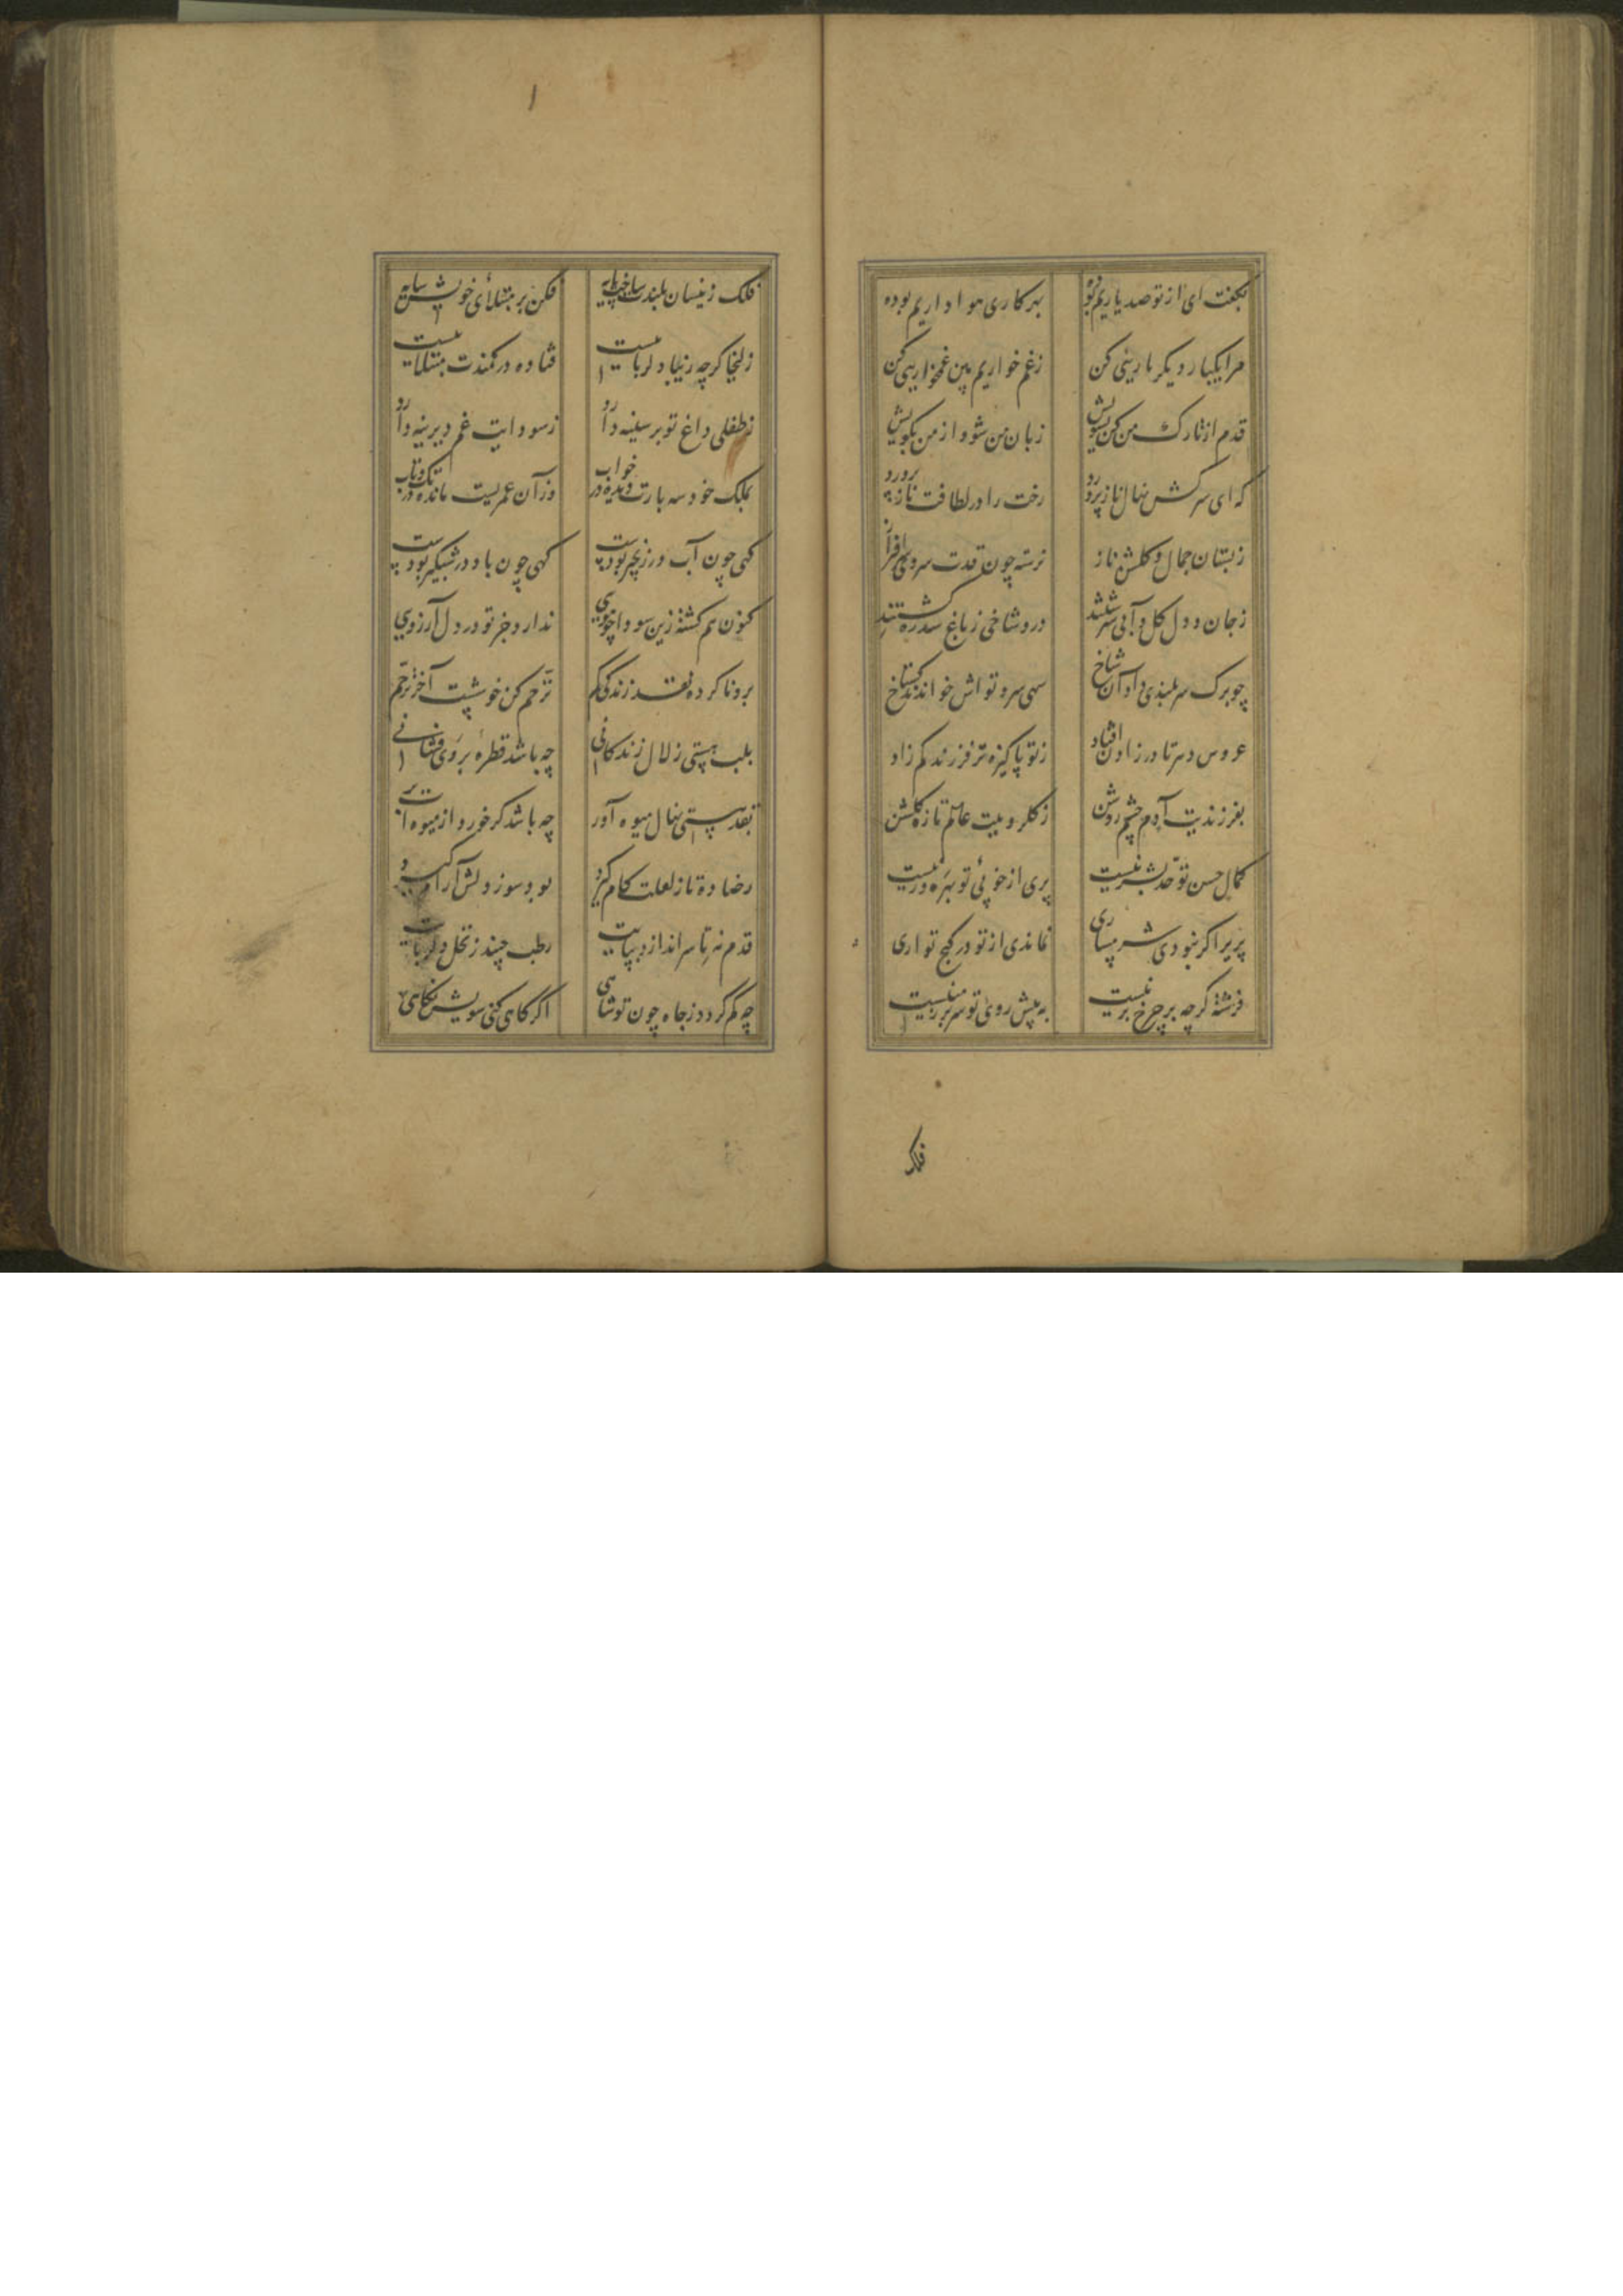 بکفت ای از تو صد یاریم بوده بهر کاری هواداریم بوده
مرا یکبار دیکر یاریئی کن زغم خواریم بین غمخواریئی کن
قدم از تارک من کن بسویش زبان من شو و از من بکویش
که ای سرکش نهال ناز پرورد رخت را در لطافت ناز پرورد
زبستان جمال و کلشن ناز نرسته چون قدت سروی سرافراز
زجان و دل کل و آبی سرشتند درو شاخی زباغ سدره کشتند
چو برک سربلندی داد آن شاخ سهی سرو تواش خواندند کستاخ
عروس دهر تا در زادن افتاد زتو پاکیزه تر فرزند کم زاد
بفرزندیت آدم چشم روشن زکلرویت عالم تازه کلشن
کمال حسن تو حد بشر نیست پری از خوبئ تو بهره ور نیست
پریرا کر نبودی شرمساری نماندی از تو در کنج تواری
فرشته کرچه بر چرخ برینست به پیش روی تو سر بر زمینست
فلک
فلک زینسان بلندت ساخت پایه فکن بر مبتلای خویش سایه
زلیخا کرچه زیبا دلرباییست فتاده در کمندت مبتلاییست
زطفلی داغ تو بر سینه دارد زسودایت غم دیرینه دارد
بملک خود سه بارت دیده در خواب وزآن عمریست مانده در تک و تاب
کهی چون آب در زنجیر بودست کهی چون باد در شبکیر بودست
کنون هم کشته زین سودا چو مویی ندارد جز تو در دل آرزویی
برونا کرده نقد زندکی کم ترحم کن خوشیست آخر ترحم
بلب هستی زلال زندکانی چه باشد قطرهٔ بروی فشانی
بقد هستی نهال میوه آور چه باشد کر خورد از میوه ات بر
رضا ده تا زلعلت کام کیرد بود سوز دلش آرام کیرد
قدم نه تا سر اندازد بپایت رطب چیند زنخل دلربایت
چه کم کردد زجاه چون تو شاهی اکر کاهی کنی سویش نکاهی